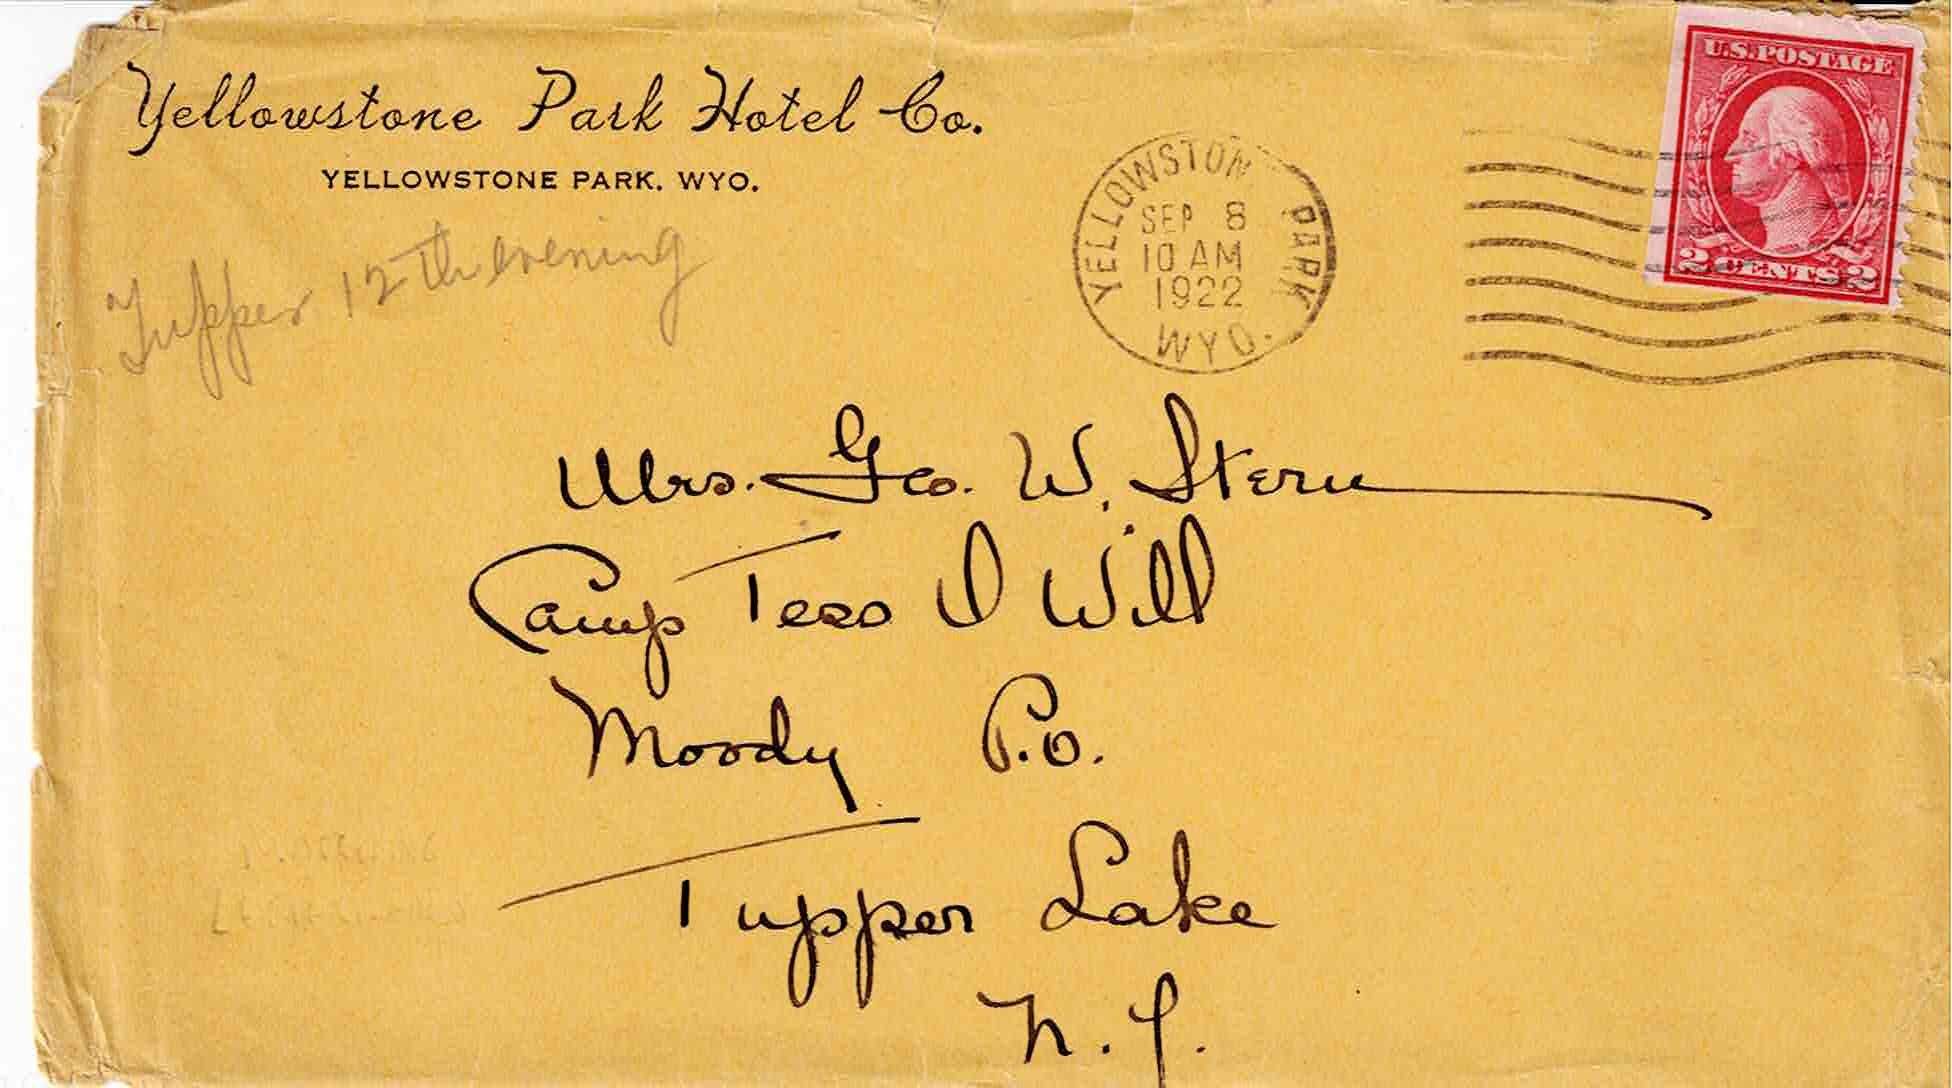 Yellowstone Park Hotel Co.
YELLOWSTONE PARK, WYO.
Tupper 12th evening
YELLOWSTON PARK
SEP 8
10 AM
1922
WYO.
U.S. POSTAGE
2 CENTS 2
Mrs. Geo. W. Stern
Camp Tess I Will
Moody P.O.
Tupper Lake
N.Y.